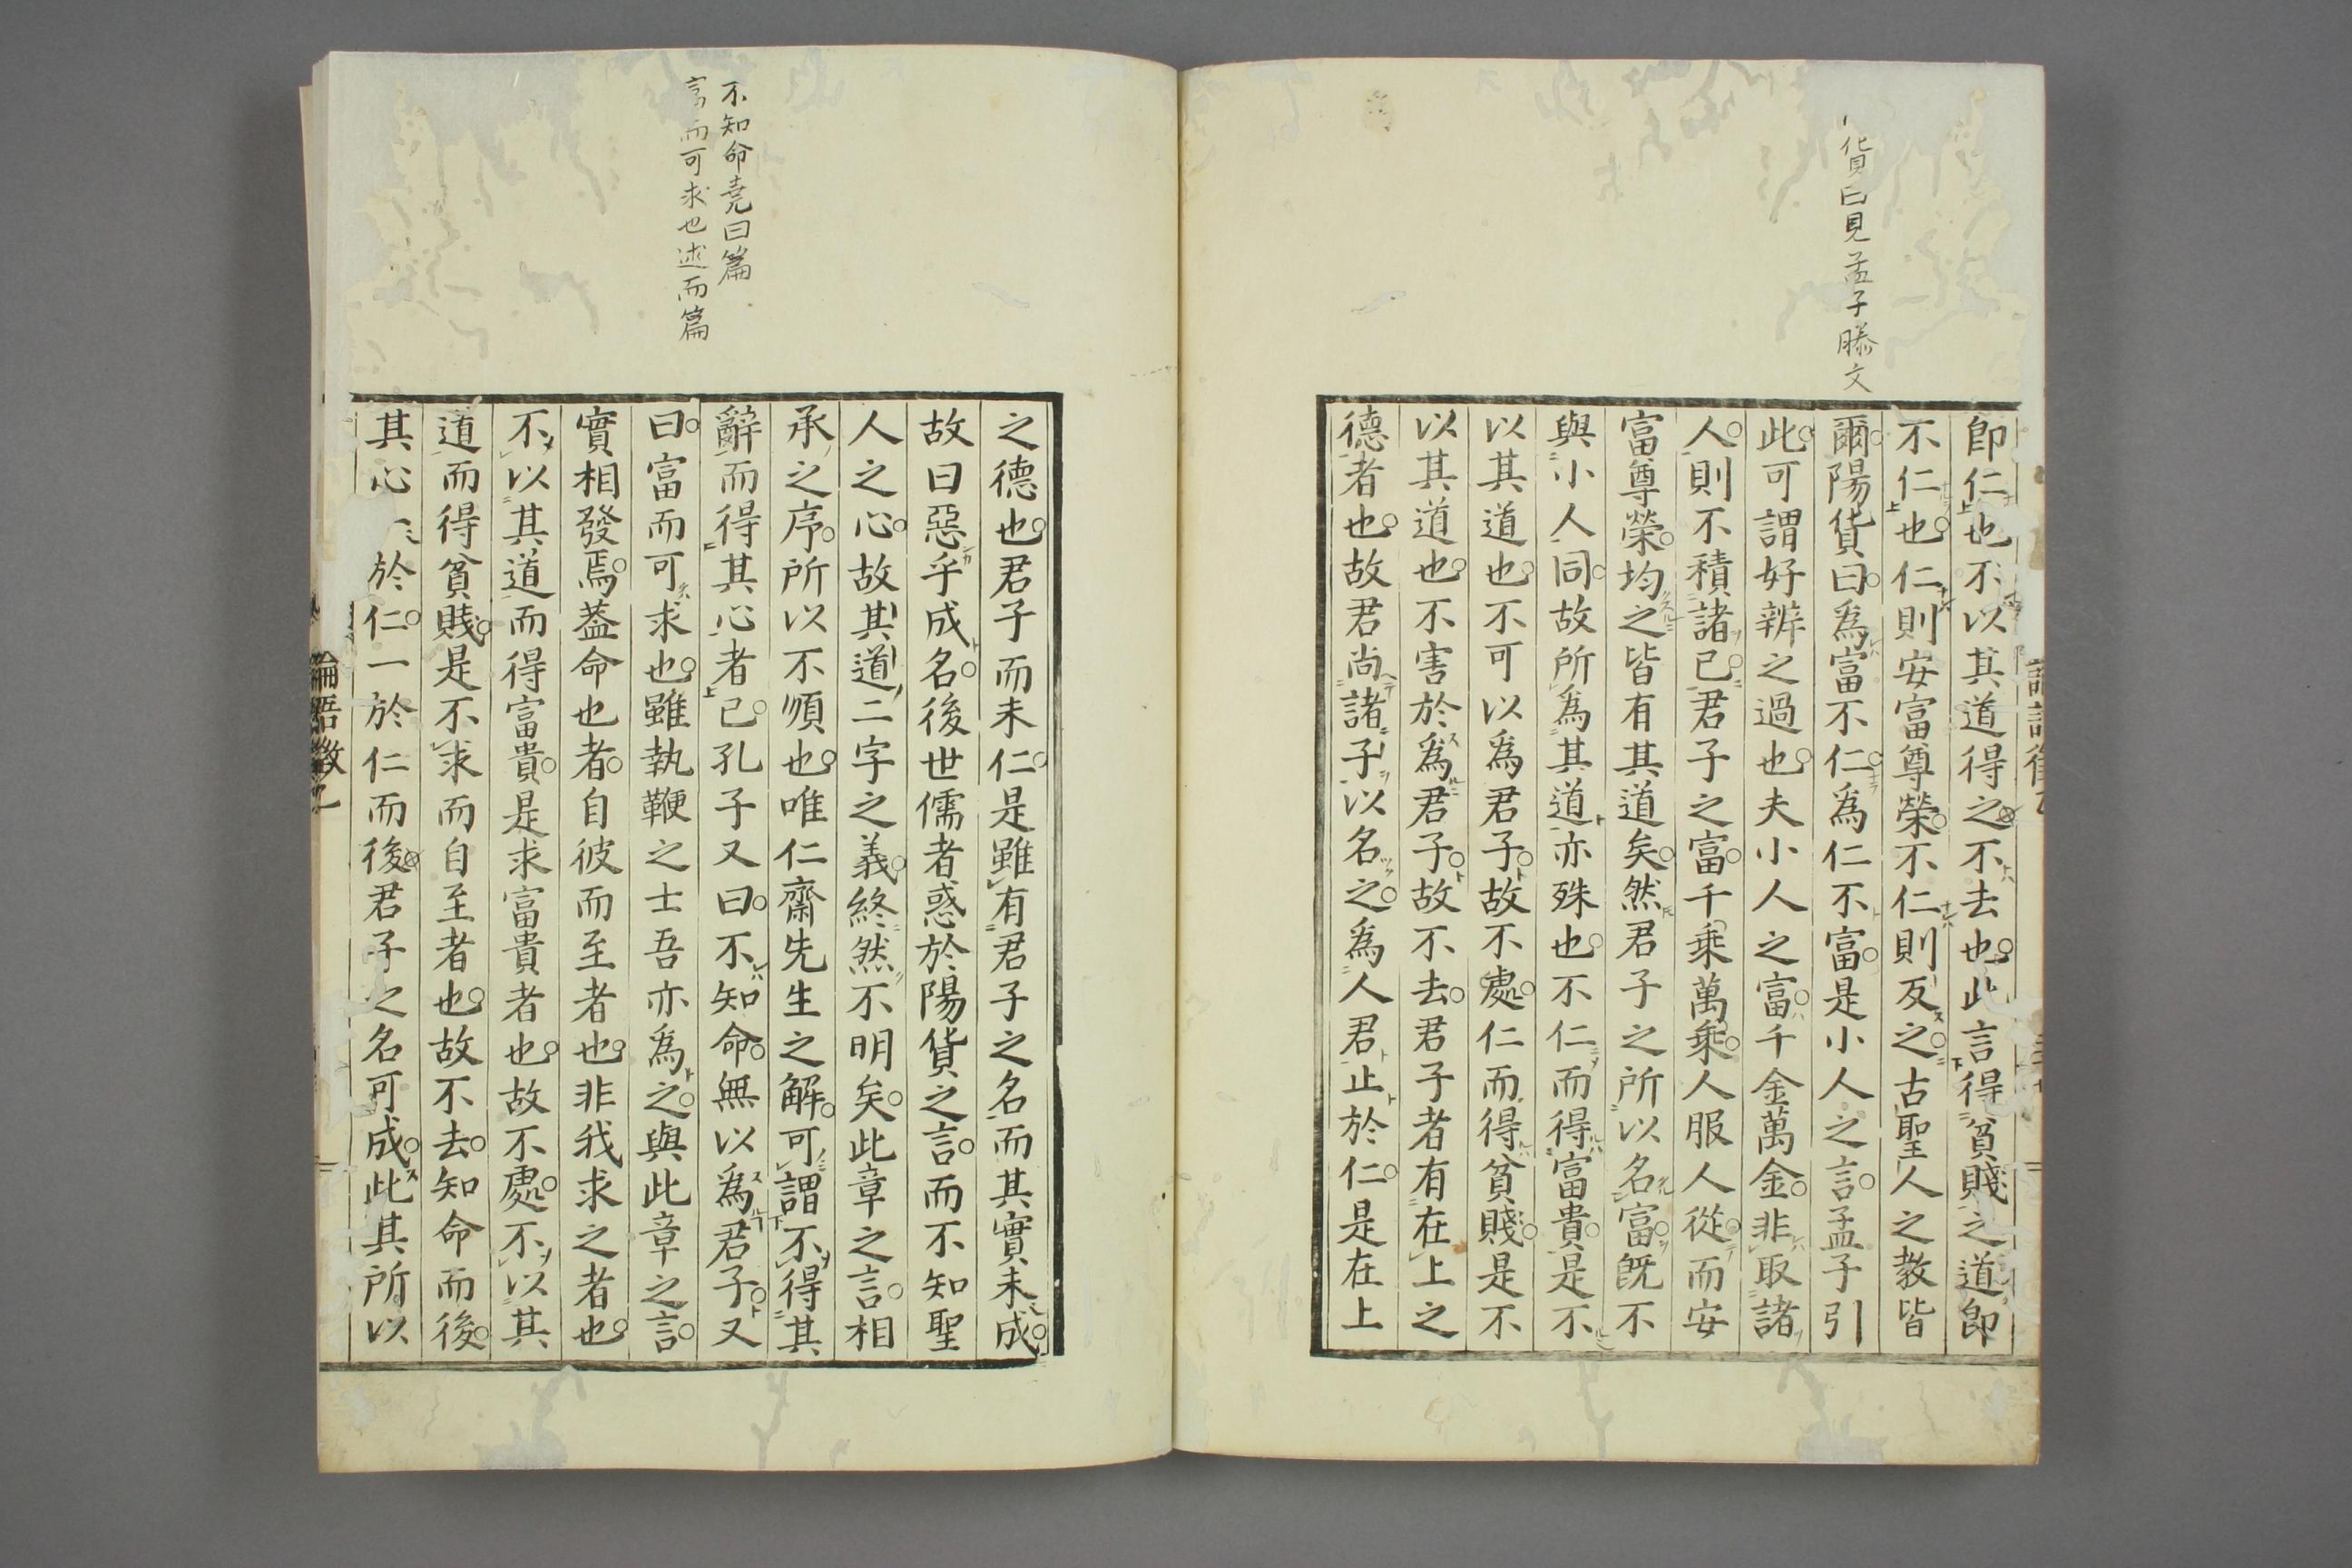 貨曰見孟子滕文
即仁也不以其道得之不去也此言得貧賤之道即
不仁也仁則安富尊榮不仁則反之古聖人之教皆
爾陽貨曰為富不仁為仁不富是小人之言孟子引
此可謂好辨之過也夫小人之富千金萬金非取諸
人則不積諸己君子之富千乘萬乘人服人從而安
富尊榮均之皆有其道矣然君子之所以名富既不
與小人同故所為其道亦殊也不仁而得富貴是不
以其道也不可以為君子故不處仁而得貧賤是不
以其道也不害於為君子故不去君子者有在上之
德者也故君尚諸子以名之為人君止於仁是在上
不知命堯曰篇
富而可求也述而篇
之德也君子而未仁是雖有君子之名而其實未成
故曰惡乎成名後世儒者惑於陽貨之言而不知聖
人之心故其道二字之義終然不明矣此章之言相
承之序所以不順也唯仁齋先生之解可謂不得其
辭而得其心者已孔子又曰不知命無以為君子又
曰富而可求也雖執鞭之士吾亦為之與此章之言
實相發焉蓋命也者自彼而至者也非我求之者也
不以其道而得富貴是求富貴者也故不處不以其
道而得貧賤是不求而自至者也故不去知命而後
其心於仁一於仁而後君子之名可成此其所以
論語徵